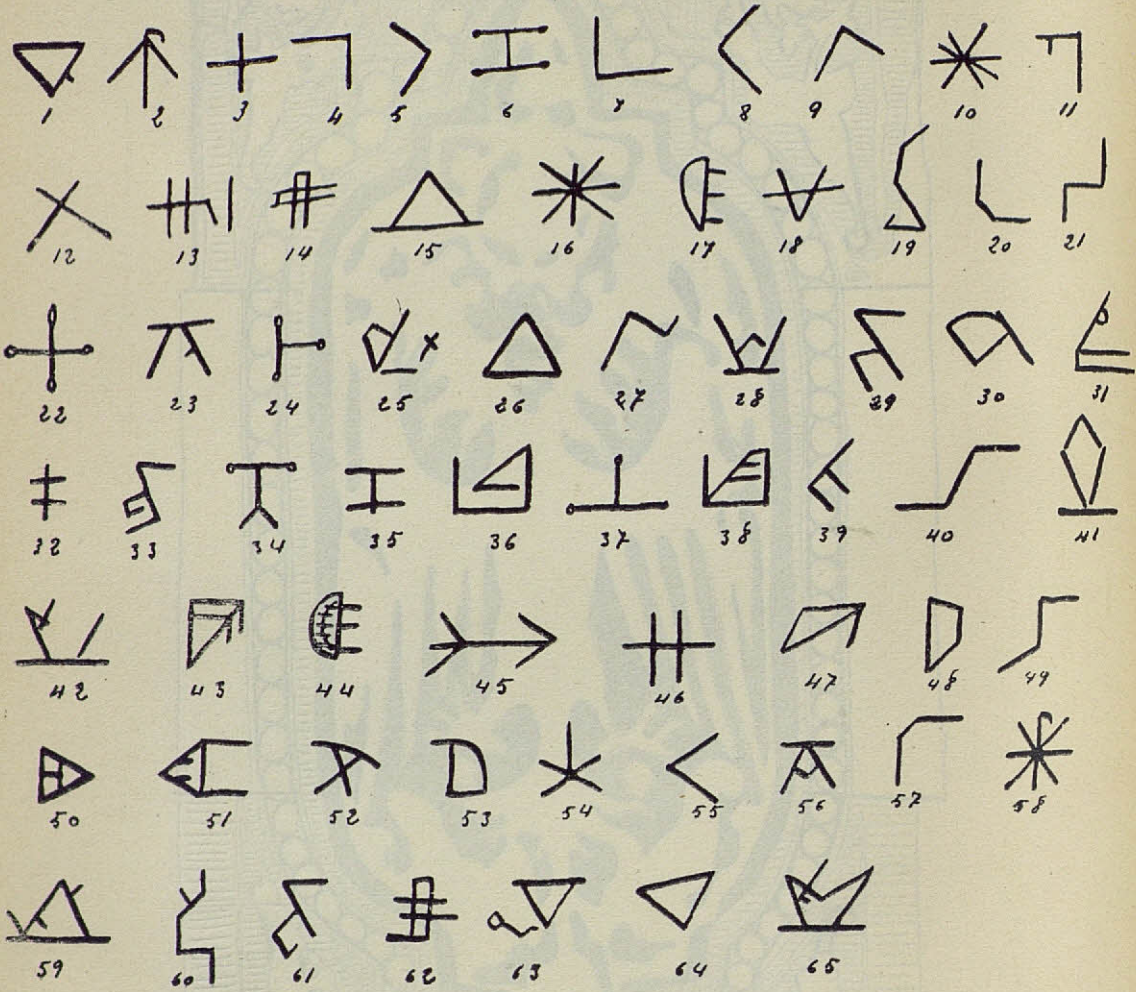 1 2 3 4 5 6 7 8 9 10 11
12 13 14 15 16 17 18 19 20 21
22 23 24 25 26 27 28 29 30 31
32 33 34 35 36 37 38 39 40 41
42 43 44 45 46 47 48 49
50 51 52 53 54 55 56 57 58
59 60 61 62 63 64 65